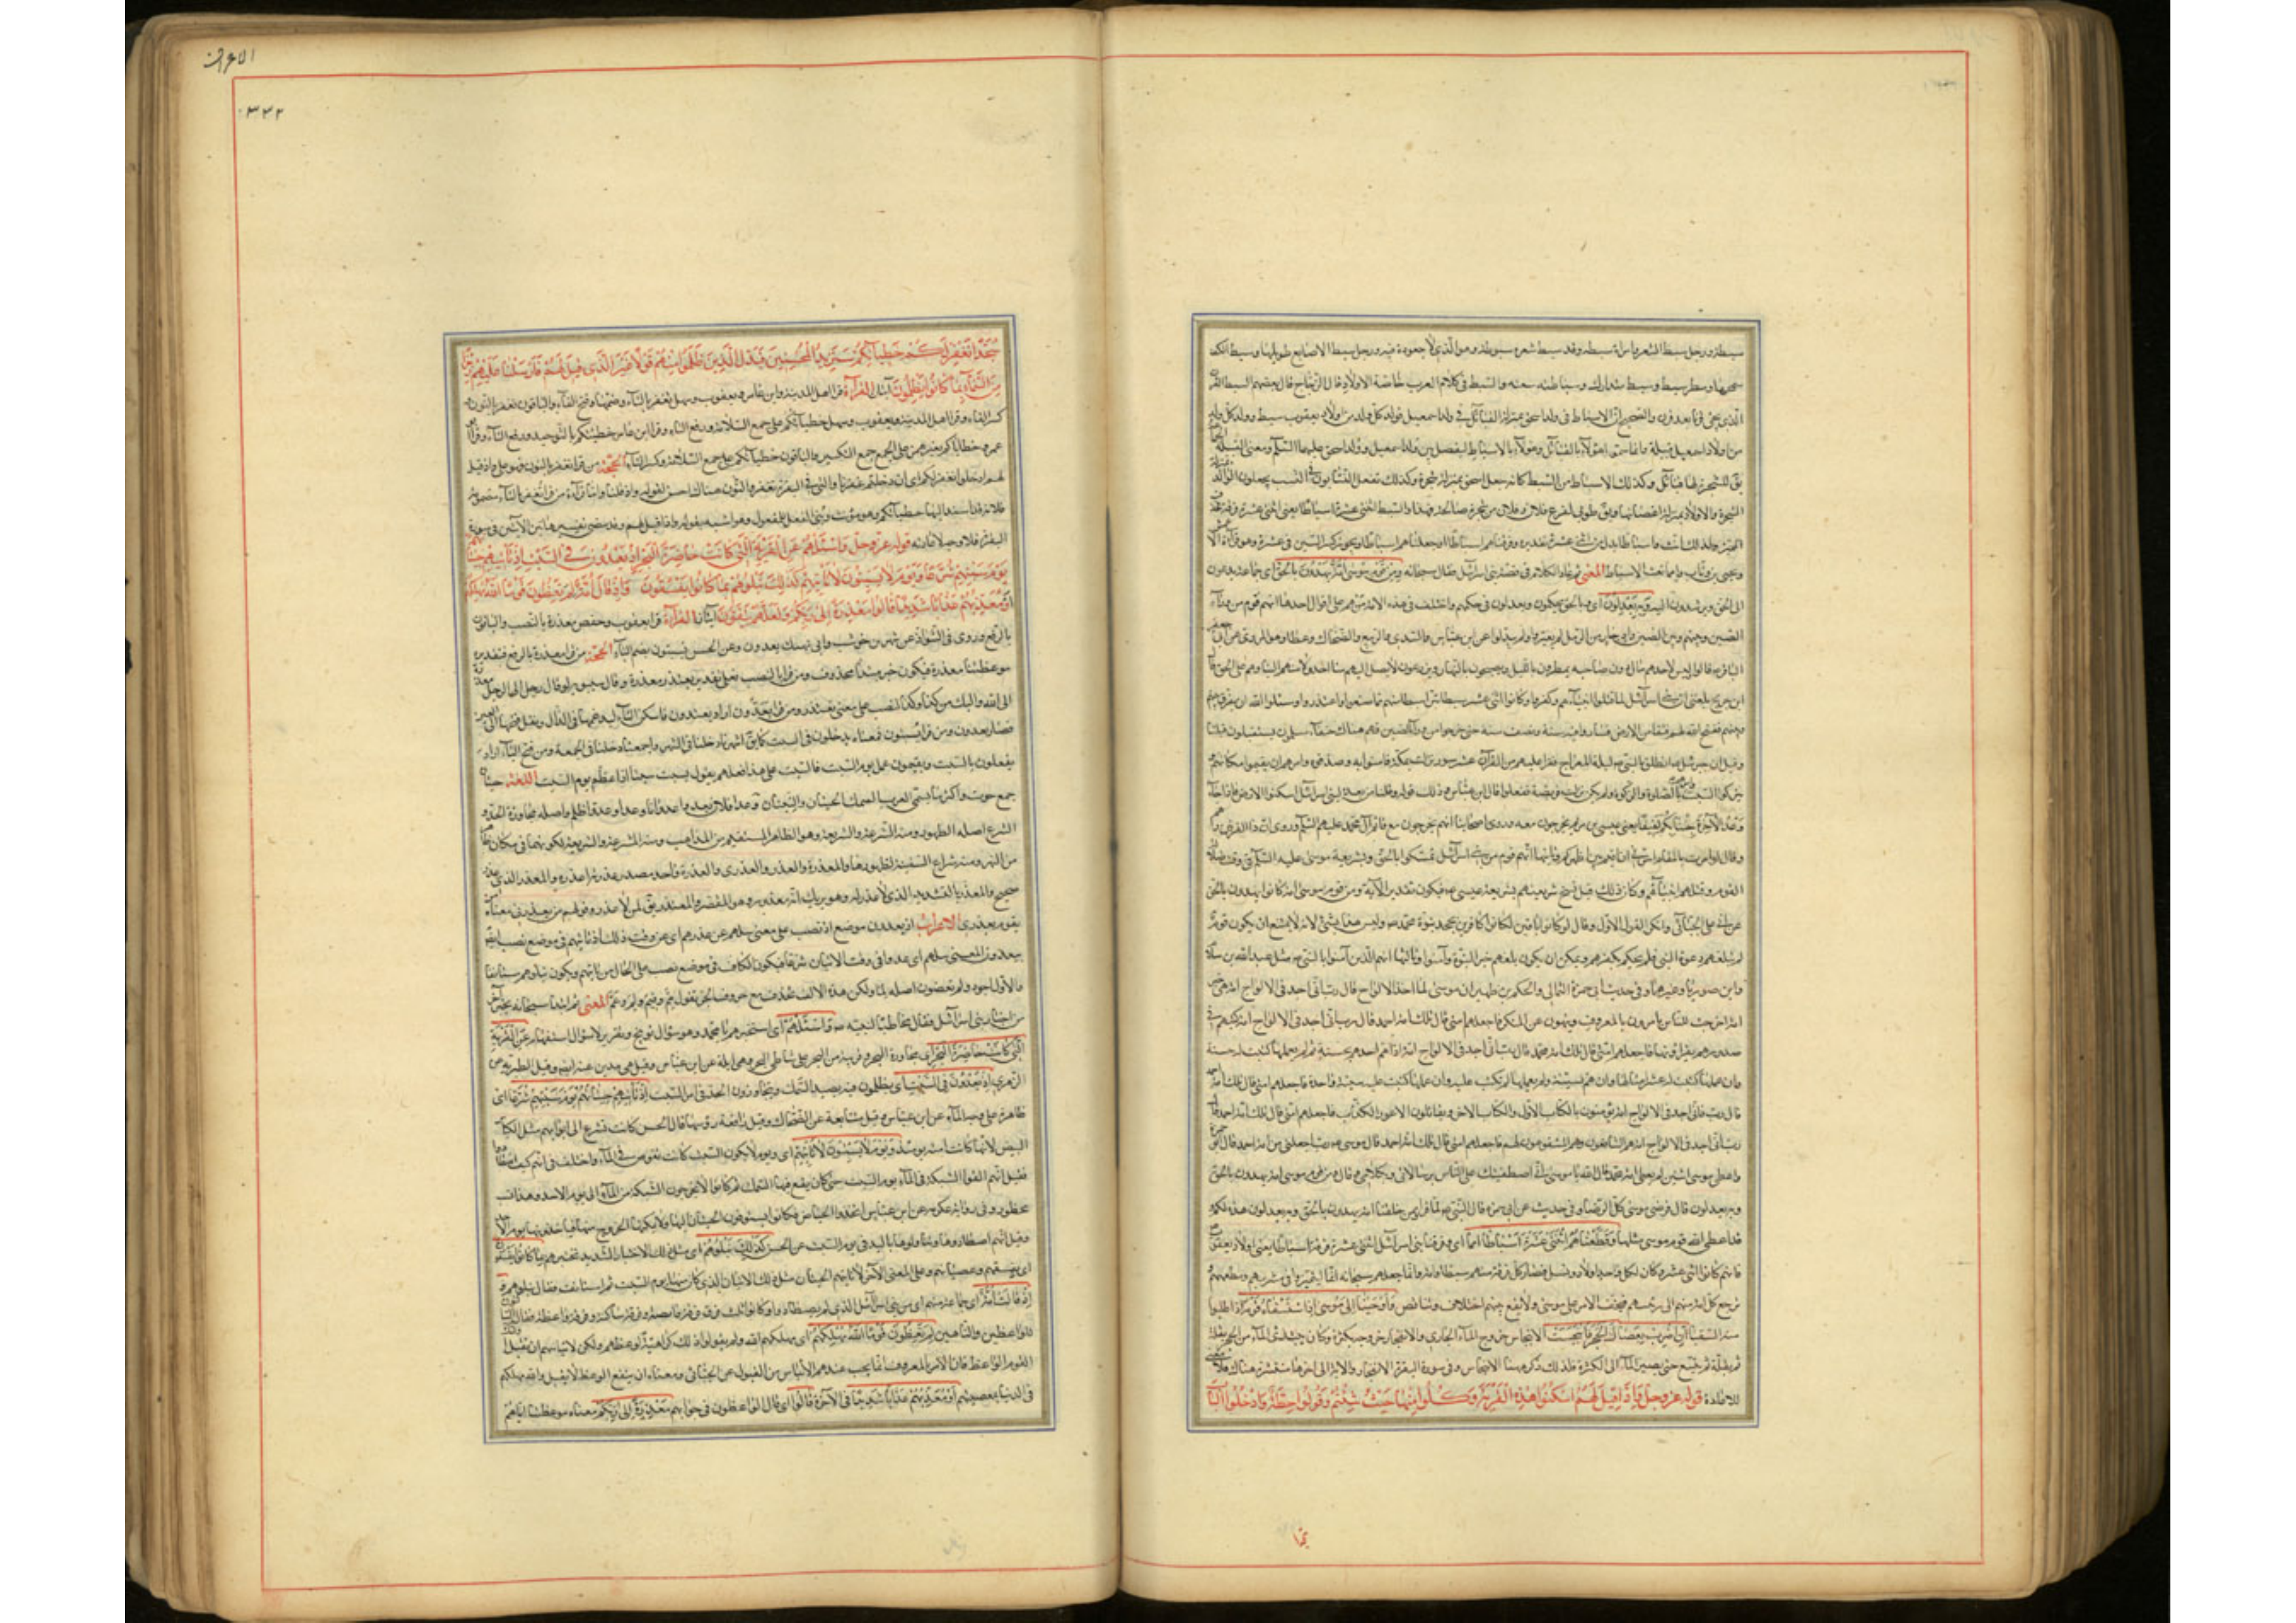 سبطة ورجل سبط الشعر وامرأة سبطة وقد سبط شعره سبوطة وهو الذي لا جعودة فيه ورجل سبط الاصابع طويلها وسبط الكف
والسبط في كلام العرب خاصة الاولاد قال الزجاج قال بعضهم السبط القرن
الذي يجئ قرنا بعد قرن والصحيح ان الاسباط في ولد اسحق بمنزلة القبائل في ولد اسمعيل فولد كل ولد من اولاد يعقوب سبط وولد كل ولد
من اولاد اسمعيل قبيلة وانما سموا هؤلاء بالقبائل وهؤلاء بالاسباط ليفصل بين ولد اسمعيل وولد اسحق عليهما السلم ومعنى القبيلة
يق للشجرة لها قبائل وكذلك الاسباط من السبط كانه جعل اسحق بمنزلة شجرة وكذلك تفعل النسابون في النسب يجعلون الوالد
الشجرة والاولاد بمنزلة اغصانها ويق طوبى لفرع فلان وفلان من شجرة صالحة فهذا والسبط اثنتي عشرة اسباطا يعني اثنتي عشرة فرقة
ولذلك انث واسباطا بدل من اثنتي عشرة تقديره وفرقناهم اسباطا او جعلناهم اسباطا ويجوز كسر الشين في عشرة وهو قراءة الاعمش
ويحيى بن وثاب وانما نعت الاسباط المعنى ثم عاد الكلام في قصة بني اسرائيل فقال سبحانه ومن قوم موسى امة يهدون بالحق اي جماعة يدعون
الى الحق ويرشدون اليه وبه يعدلون اي وبالحق يحكمون ويعدلون في حكمهم واختلف في هذه الامة من هم على اقوال احدها انهم قوم من وراء
الصين وبينهم وبين الصين واد جار من الرمل لم يغيروا ولم يبدلوا عن ابن عباس والسدي والربيع والضحاك وعطا وهو المروي عن ابي جعفر
الباقر ع قالوا ليس لاحدهم مال دون صاحبه يمطرون بالليل ويصحون بالنهار ويزرعون لا يصل اليهم منا احد ولا منهم الينا وهم على الحق قال
ابن جريج بلغني ان بني اسرائيل لما قتلوا انبياءهم وكفروا وكانوا اثني عشر سبطا تبرأ سبط منهم مما صنعوا واعتذروا وسئلوا الله ان يفرق بينهم
وبينهم ففتح الله لهم نفقا من الارض فساروا فيه سنة ونصف سنة حتى خرجوا من وراء الصين فهم هناك حنفاء مسلمون يستقبلون قبلتنا
وقيل ان جبرئيل انطلق بالنبي ص ليلة المعراج فقرأ عليهم من القرآن عشر سور نزلت بمكة فامنوا به وصدقوه وامرهم ان يقيموا مكانهم و
يتركوا السبت وامرهم بالصلوة والزكوة ولم يكن نزلت فريضة ففعلوا قال ابن عباس وذلك قوله وقلنا من بعده لبني اسرائيل اسكنوا الارض فاذا جاء
وعد الآخرة جئنا بكم لفيفا يعني عيسى بن مريم يخرجون معه وروى اصحابنا انهم يخرجون مع قائم آل محمد عليهم السلم وروي ان ذا القرنين راهم
وقال لو امرت بالمقام لسرني ان اقيم بين اظهركم وثانيها انهم قوم من بني اسرائيل تمسكوا بالحق وبشريعة موسى عليه السلم في وقت ضلالة
القوم وقتلهم انبياءهم وكان ذلك قبل نسخ شريعتهم بشريعة عيسى ع فيكون تقدير الآية ومن قوم موسى امة كانوا يهدون بالحق
عن ابي علي الجبائي وانكر القول الاول وقال لو كانوا باقين لكانوا كافرين بجحد نبوة محمد ص وليس هذا بشئ لانه لا يمتنع ان يكون قوم
لم تبلغهم دعوة النبي فلم يحكم بكفرهم ويمكن ان يكون بلغهم خبر النبوة وآمنوا وثالثها انهم الذين آمنوا بالنبي ص مثل عبد الله بن سلام
وابن صوريا وغيرهما وفي حديث ابي حمزة الثمالي والحكم بن ظهير ان موسى لما اخذ الالواح قال رب اني اجد في الالواح امة هي خير
امة اخرجت للناس يأمرون بالمعروف وينهون عن المنكر فاجعلهم امتي قال تلك امة احمد قال رب اني اجد في الالواح امة كتبهم في
صدورهم يقرؤنها فاجعلهم امتي قال تلك امة محمد قال رب اني اجد في الالواح امة اذا هم احدهم بحسنة ثم لم يعملها كتبت له حسنة
وان عملها كتبت له عشر امثالها وان هم بسيئة ولم يعملها لم تكتب عليه وان عملها كتبت عليه سيئة واحدة فاجعلهم امتي قال تلك امة احمد
قال رب اني اجد في الالواح امة يؤمنون بالكتاب الاول والكتاب الاخر ويقاتلون الاعور الكذاب فاجعلهم امتي قال تلك امة احمد قال
رب اني اجد في الالواح امة هم الشافعون وهم المشفوعون لهم فاجعلهم امتي قال تلك امة احمد قال موسى رب اجعلني من امة احمد قال ابو حمزة
واعطي موسى اثنتين لم يعطها امة محمد قال الله يا موسى اني اصطفيتك على الناس برسالاتي وبكلامي وقال ومن قوم موسى امة يهدون بالحق
وبه يعدلون قال فرضي موسى كل الرضا وفي حديث عن ابي حمزة قال النبي ص لما قرأ وممن خلقنا امة يهدون بالحق وبه يعدلون هذه لكم
قد اعطى الله قوم موسى مثلها وقطعناهم اثنتي عشرة اسباطا امما اي وفرقنا بني اسرائيل اثنتي عشرة فرقة اسباطا يعني اولاد يعقوب ع
فانهم كانوا اثني عشر وكان لكل واحد اولاد ونسل فصار كل فرقة منهم سبطا وامة وانما جعلهم سبحانه امما ليتميزوا في مشربهم ومطعمهم و
يرجع كل امة منهم الى رئيسهم فيخف الامر على موسى ولا يقع بينهم اختلاف وتباغض واوحينا الى موسى اذ استسقاه قومه اي اطلبوا
منه السقيا ان اضرب بعصاك الحجر فانبجست الانبجاس خروج الماء الجاري والانفجار خروجه بكثرة وكان يبتدئ الماء من الحجر بقلة
ثم يتسع حتى يصير الماء الى الكثرة فلذلك ذكر ههنا الانبجاس وفي سورة البقرة الانفجار والآية الى آخرها مفسرة هناك فلا معنى
للاعادة قوله عز وجل واذ قيل لهم اسكنوا هذه القرية وكلوا منها حيث شئتم وقولوا حطة وادخلوا الباب
الاعراف
٣٣٢
سجدا نغفر لكم خطيئاتكم سنزيد المحسنين فبدل الذين ظلموا منهم قولا غير الذي قيل لهم فارسلنا عليهم رجزا
من السماء بما كانوا يظلمون آيتان القراءة قرأ اهل المدينة وابن عامر ويعقوب وسهل تغفر بالتاء وضمها وفتح الفاء والباقون نغفر بالنون و
كسر الفاء وقرأ اهل المدينة ويعقوب وسهل خطيئاتكم على جمع السلامة ورفع التاء وقرأ ابن عامر خطيئتكم بالتوحيد ورفع التاء وقرأ ابو
عمرو خطاياكم بغير همز على جمع التكسير والباقون خطيئاتكم على جمع السلامة وكسر التاء الحجة من قرأ نغفر بالنون فهو على واذ قيل
لهم ادخلوا نغفر لكم اي ان دخلتم غفرنا والتي في البقرة نغفر والنون هناك احسن لقوله واذ قلنا واما قراءة من قرأ تغفر بالتاء مضمومة
فلانه قد اسند اليها خطيئاتكم وهو مؤنث وبنى الفعل للمفعول وهو اشبه بقوله واذ قيل لهم وقد مضى تفسير هاتين الآيتين في سورة
البقرة فلا وجه لاعادته قوله عز وجل واسئلهم عن القرية التي كانت حاضرة البحر اذ يعدون في السبت اذ تأتيهم حيتانهم
يوم سبتهم شرعا ويوم لا يسبتون لا تأتيهم كذلك نبلوهم بما كانوا يفسقون واذ قالت امة منهم لم تعظون قوما الله مهلكهم
او معذبهم عذابا شديدا قالوا معذرة الى ربكم ولعلهم يتقون آيتان القراءة قرأ يعقوب وحفص معذرة بالنصب والباقون
بالرفع وروي في الشواذ عن شهر بن حوشب وابي نهيك يعدون وعن الحسن يسبتون بضم الياء الحجة من قرأ معذرة بالرفع فتقديره
موعظتنا معذرة فيكون خبر مبتدأ محذوف ومن قرأ بالنصب فعلى تقدير نعتذر معذرة وقال سيبويه لو قال رجل لرجل معذرة
الى الله واليك من كذا وكذا لنصب على معنى نعتذر ومن قرأ يعدون اراد يعتدون فاسكن التاء ليدغمها في الدال ونقل فتحها الى العين
فصار يعدون ومن قرأ يسبتون فمعناه يدخلون في السبت كما يق اشهرنا دخلنا في الشهر واجمعنا دخلنا في الجمعة ومن فتح الياء اراد
يفعلون بالسبت ويقيمون عمل يوم السبت فالسبت على هذا فعلهم يقول يسبت سبتا اذا عظم يوم السبت اللغة حيتان
جمع حوت واكثر ما تسمي العرب السمك الحيتان والنينان وعدا فلان يعدو عدوانا وعدوا وعدا ظلم واصله مجاوزة الحد و
الشرع اصله الظهور ومنه الشرعة والشريعة وهو الظاهر المستقيم من المذاهب ومنه المشرعة والشريعة لكونها في مكان ظاهر
من النهر ومنه شراع السفينة لظهوره والمعذرة والعذر والعذرى والعذرة واحد مصدر عذرته اعذره والمعذر الذي له عذر
صحيح والمعذر بالتشديد الذي لا عذر له وهو يريك انه معذور وهو المقصر والمعتذر يق لمن له عذر وقولهم من يعذرني معناه من
يقوم بعذري الاعراب اذ يعدون موضع اذ نصب على معنى سلهم عن عذرهم اي عن وقت ذلك اذ تأتيهم في موضع نصب ايضا
بيعدون المعنى سلهم اي عدوا في وقت الاتيان شرعا فيكون الكاف في موضع نصب على الحال من تأتيهم ويكون نبلوهم مستانفا
والاول اجود ولم تعظون اصله لما ولكن هذه الالف تحذف مع حروف الجر نقول بم وفيم ولم وعم المعنى ثم ابتدأ سبحانه بخبر آخر
من اخبار بني اسرائيل فقال مخاطبا لنبيه ص واسئلهم اي استخبرهم يا محمد وهو سؤال توبيخ وتقرير لا سؤال استفهام عن القرية
التي كانت حاضرة البحر اي مجاورة البحر وقريبة من البحر على شاطئ البحر وهي ايلة عن ابن عباس وقيل هي مدين عنه ايضا وقيل الطبرية عن
الزهري اذ يعدون في السبت اي يظلمون فيه بصيد السمك ويتجاوزون الحد في امر السبت اذ تأتيهم حيتانهم يوم سبتهم شرعا اي
ظاهرة على وجه الماء عن ابن عباس وقيل متتابعة عن الضحاك وقيل رافعة رؤسها قال الحسن كانت تشرع الى ابوابهم مثل الكباش
البيض لانها كانت آمنة يومئذ ويوم لا يسبتون لا تأتيهم اي ويوم لا يكون السبت كانت تغوص في الماء واختلف في انهم كيف اصطادوا
فقيل انهم القوا الشبكة في الماء يوم السبت حتى كان يقع فيها السمك ثم كانوا لا يخرجون الشبكة من الماء الى يوم الاحد وهذا سبب
محظور وفي رواية عكرمة عن ابن عباس اتخذوا الحياض فكانوا يسوقون الحيتان اليها ولا يمكنها الخروج منها فياخذونها يوم الاحد
وقيل انهم اصطادوها وتناولوها باليد في يوم السبت عن الحسن كذلك نبلوهم اي مثل ذلك الاختبار الشديد نختبرهم بما كانوا يفسقون
اي بفسقهم وعصيانهم وعلى المعنى الآخر لا تأتيهم الحيتان مثل ذلك الاتيان الذي كان منها يوم السبت ثم استانف فقال نبلوهم و
اذ قالت امة اي جماعة منهم اي من بني اسرائيل الذين لم يصطادوا وكانوا ثلث فرق فرقة قانصة وفرقة ساكتة وفرقة واعظة فقال الساكتون
للواعظين والناهين لم تعظون قوما الله مهلكهم اي يهلكهم الله ولم يقولوا ذلك كراهية لوعظهم ولكن لاياسهم ان يقبل هؤلاء
القوم الوعظ فان الامر بالمعروف انما يجب عند عدم الاياس من القبول عن الجبائي ومعناه ان ينفع الوعظ لا يقبل والله مهلكهم
في الدنيا بمعصيتهم او معذبهم عذابا شديدا في الآخرة قالوا اي قال الواعظون في جوابهم معذرة الى ربكم معناه موعظتنا اياهم